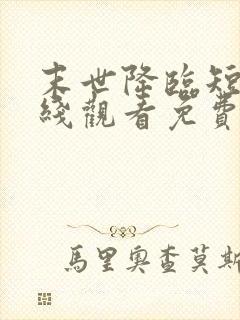 末世降臨短
綫觀看免費
馬里奧查莫斯